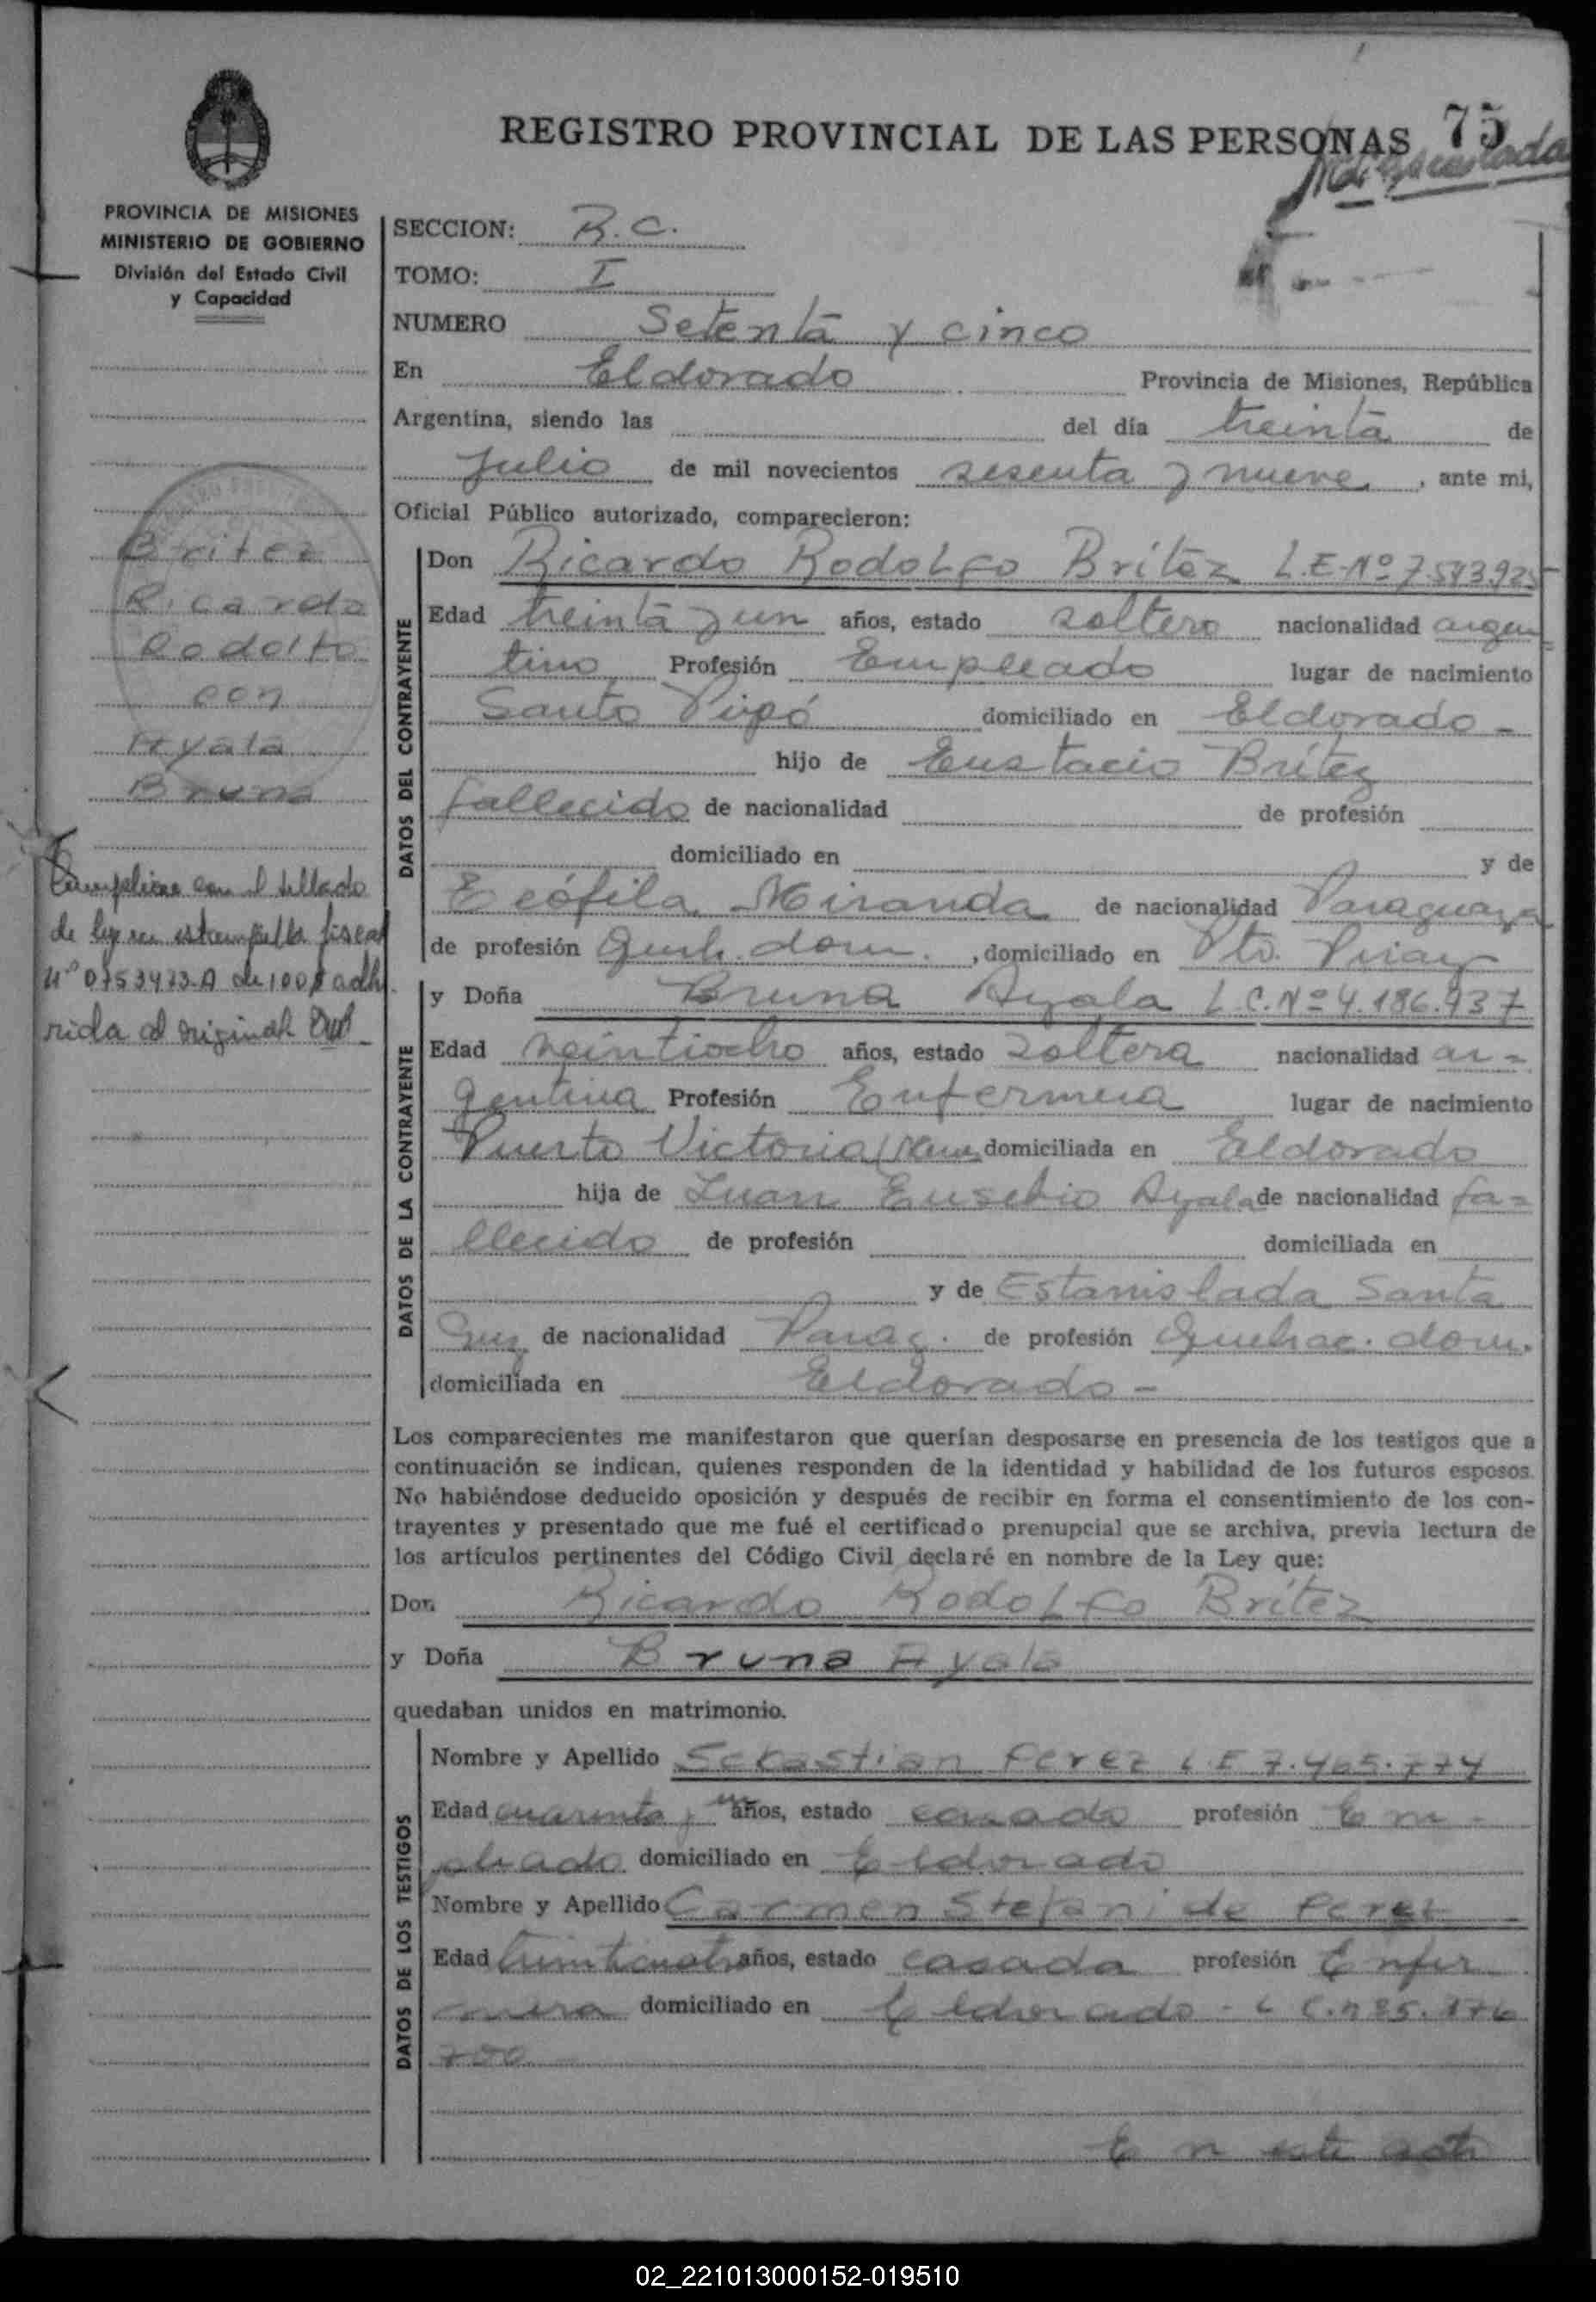 REGISTRO PROVINCIAL DE LAS PERSONAS 75
PROVINCIA DE MISIONES
MINISTERIO DE GOBIERNO
División del Estado Civil
y Capacidad
SECCION: R.C.
TOMO: I
NUMERO Setenta y cinco
En Eldorado Provincia de Misiones, República
Argentina, siendo las del día treinta de
Julio de mil novecientos sesenta y nueve, ante mi,
Oficial Público autorizado, comparecieron:
Britez
Ricardo
Rodolfo
con
Ayala
Bruna
Cumplióse con el sellado
de ley en estampilla fiscal
Nº 0753473-A de 100$ adhe
rida al original
DATOS DEL CONTRAYENTE
Don Ricardo Rodolfo Britez L.E.Nº 7.543.925
Edad treinta y un años, estado soltero nacionalidad argen
tino Profesión Empleado lugar de nacimiento
Santo Pipó domiciliado en Eldorado -
hijo de Eustacio Britez
fallecido de nacionalidad de profesión
domiciliado en y de
Teófila Miranda de nacionalidad Paraguaya
de profesión Queh. dom. , domiciliado en Pto. Piray
DATOS DE LA CONTRAYENTE
y Doña Bruna Ayala L.C.Nº 4.186.937
Edad veintiocho años, estado soltera nacionalidad ar=
gentina Profesión Enfermera lugar de nacimiento
Puerto Victoria domiciliada en Eldorado
hija de Juan Eusebio Ayala de nacionalidad fa=
llecido de profesión domiciliada en
y de Estanislada Santa
Cruz de nacionalidad Parag. de profesión Quehac. dom.
domiciliada en Eldorado -
Los comparecientes me manifestaron que querían desposarse en presencia de los testigos que a
continuación se indican, quienes responden de la identidad y habilidad de los futuros esposos.
No habiéndose deducido oposición y después de recibir en forma el consentimiento de los con-
trayentes y presentado que me fué el certificado prenupcial que se archiva, previa lectura de
los artículos pertinentes del Código Civil declaré en nombre de la Ley que:
Don Ricardo Rodolfo Britez
y Doña Bruna Ayala
quedaban unidos en matrimonio.
DATOS DE LOS TESTIGOS
Nombre y Apellido Sebastian Perez L.E 7.465.774
Edad cuarenta y un años, estado casado profesión Em-
pleado domiciliado en Eldorado
Nombre y Apellido Carmen Stefani de Perez
Edad treinticuatro años, estado casada profesión Enfer
mera domiciliado en Eldorado - L C.
700
En este acto
02_221013000152-019510